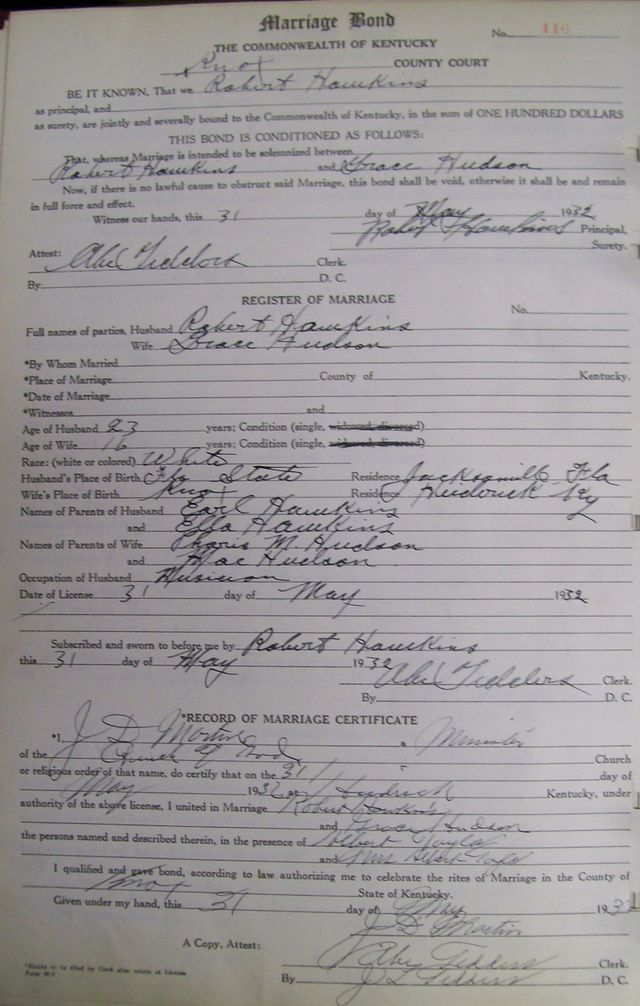 Marriage Bond
No. 116
THE COMMONWEALTH OF KENTUCKY
Knox COUNTY COURT
BE IT KNOWN, That we Robert Hawkins
as principal, and
as surety, are jointly and severally bound to the Commonwealth of Kentucky, in the sum of ONE HUNDRED DOLLARS
THIS BOND IS CONDITIONED AS FOLLOWS:
That, whereas Marriage is intended to be solemnized between
Robert Hawkins and Grace Hudson
Now, if there is no lawful cause to obstruct said Marriage, this bond shall be void, otherwise it shall be and remain
in full force and effect.
Witness our hands, this 31 day of May 1932
Robert Hawkins Principal,
Surety.
Attest:
Clerk.
By D. C.
REGISTER OF MARRIAGE
No.
Full names of parties, Husband Robert Hawkins
Wife Grace Hudson
*By Whom Married
*Place of Marriage County of Kentucky.
*Date of Marriage
*Witnesses and
Age of Husband 23 years; Condition (single, widowed, divorced)
Age of Wife 16 years; Condition (single, widowed, divorced)
Race: (white or colored) White
Husband's Place of Birth Fla State Residence Jacksonville Fla
Wife's Place of Birth Knox Residence Ky
Names of Parents of Husband Earl Hawkins
and Ella Hawkins
Names of Parents of Wife Pharis M. Hudson
and Mae Hudson
Occupation of Husband Musician
Date of License 31 day of May 1932
Subscribed and sworn to before me by Robert Hawkins
this 31 day of May 1932
Clerk.
By D. C.
*RECORD OF MARRIAGE CERTIFICATE
*I, J D Martin a Minister
of the Church of God Church
or religious order of that name, do certify that on the 31 day of
May 1932, at Kentucky, under
authority of the above license, I united in Marriage Robert Hawkins
and Grace Hudson
the persons named and described therein, in the presence of
and Mrs
I qualified and gave bond, according to law authorizing me to celebrate the rites of Marriage in the County of
Knox State of Kentucky.
Given under my hand, this 31 day of May 1932
J D Martin
A Copy, Attest:
Clerk.
By D. C.
*Blanks to be filed by Clerk after return of License